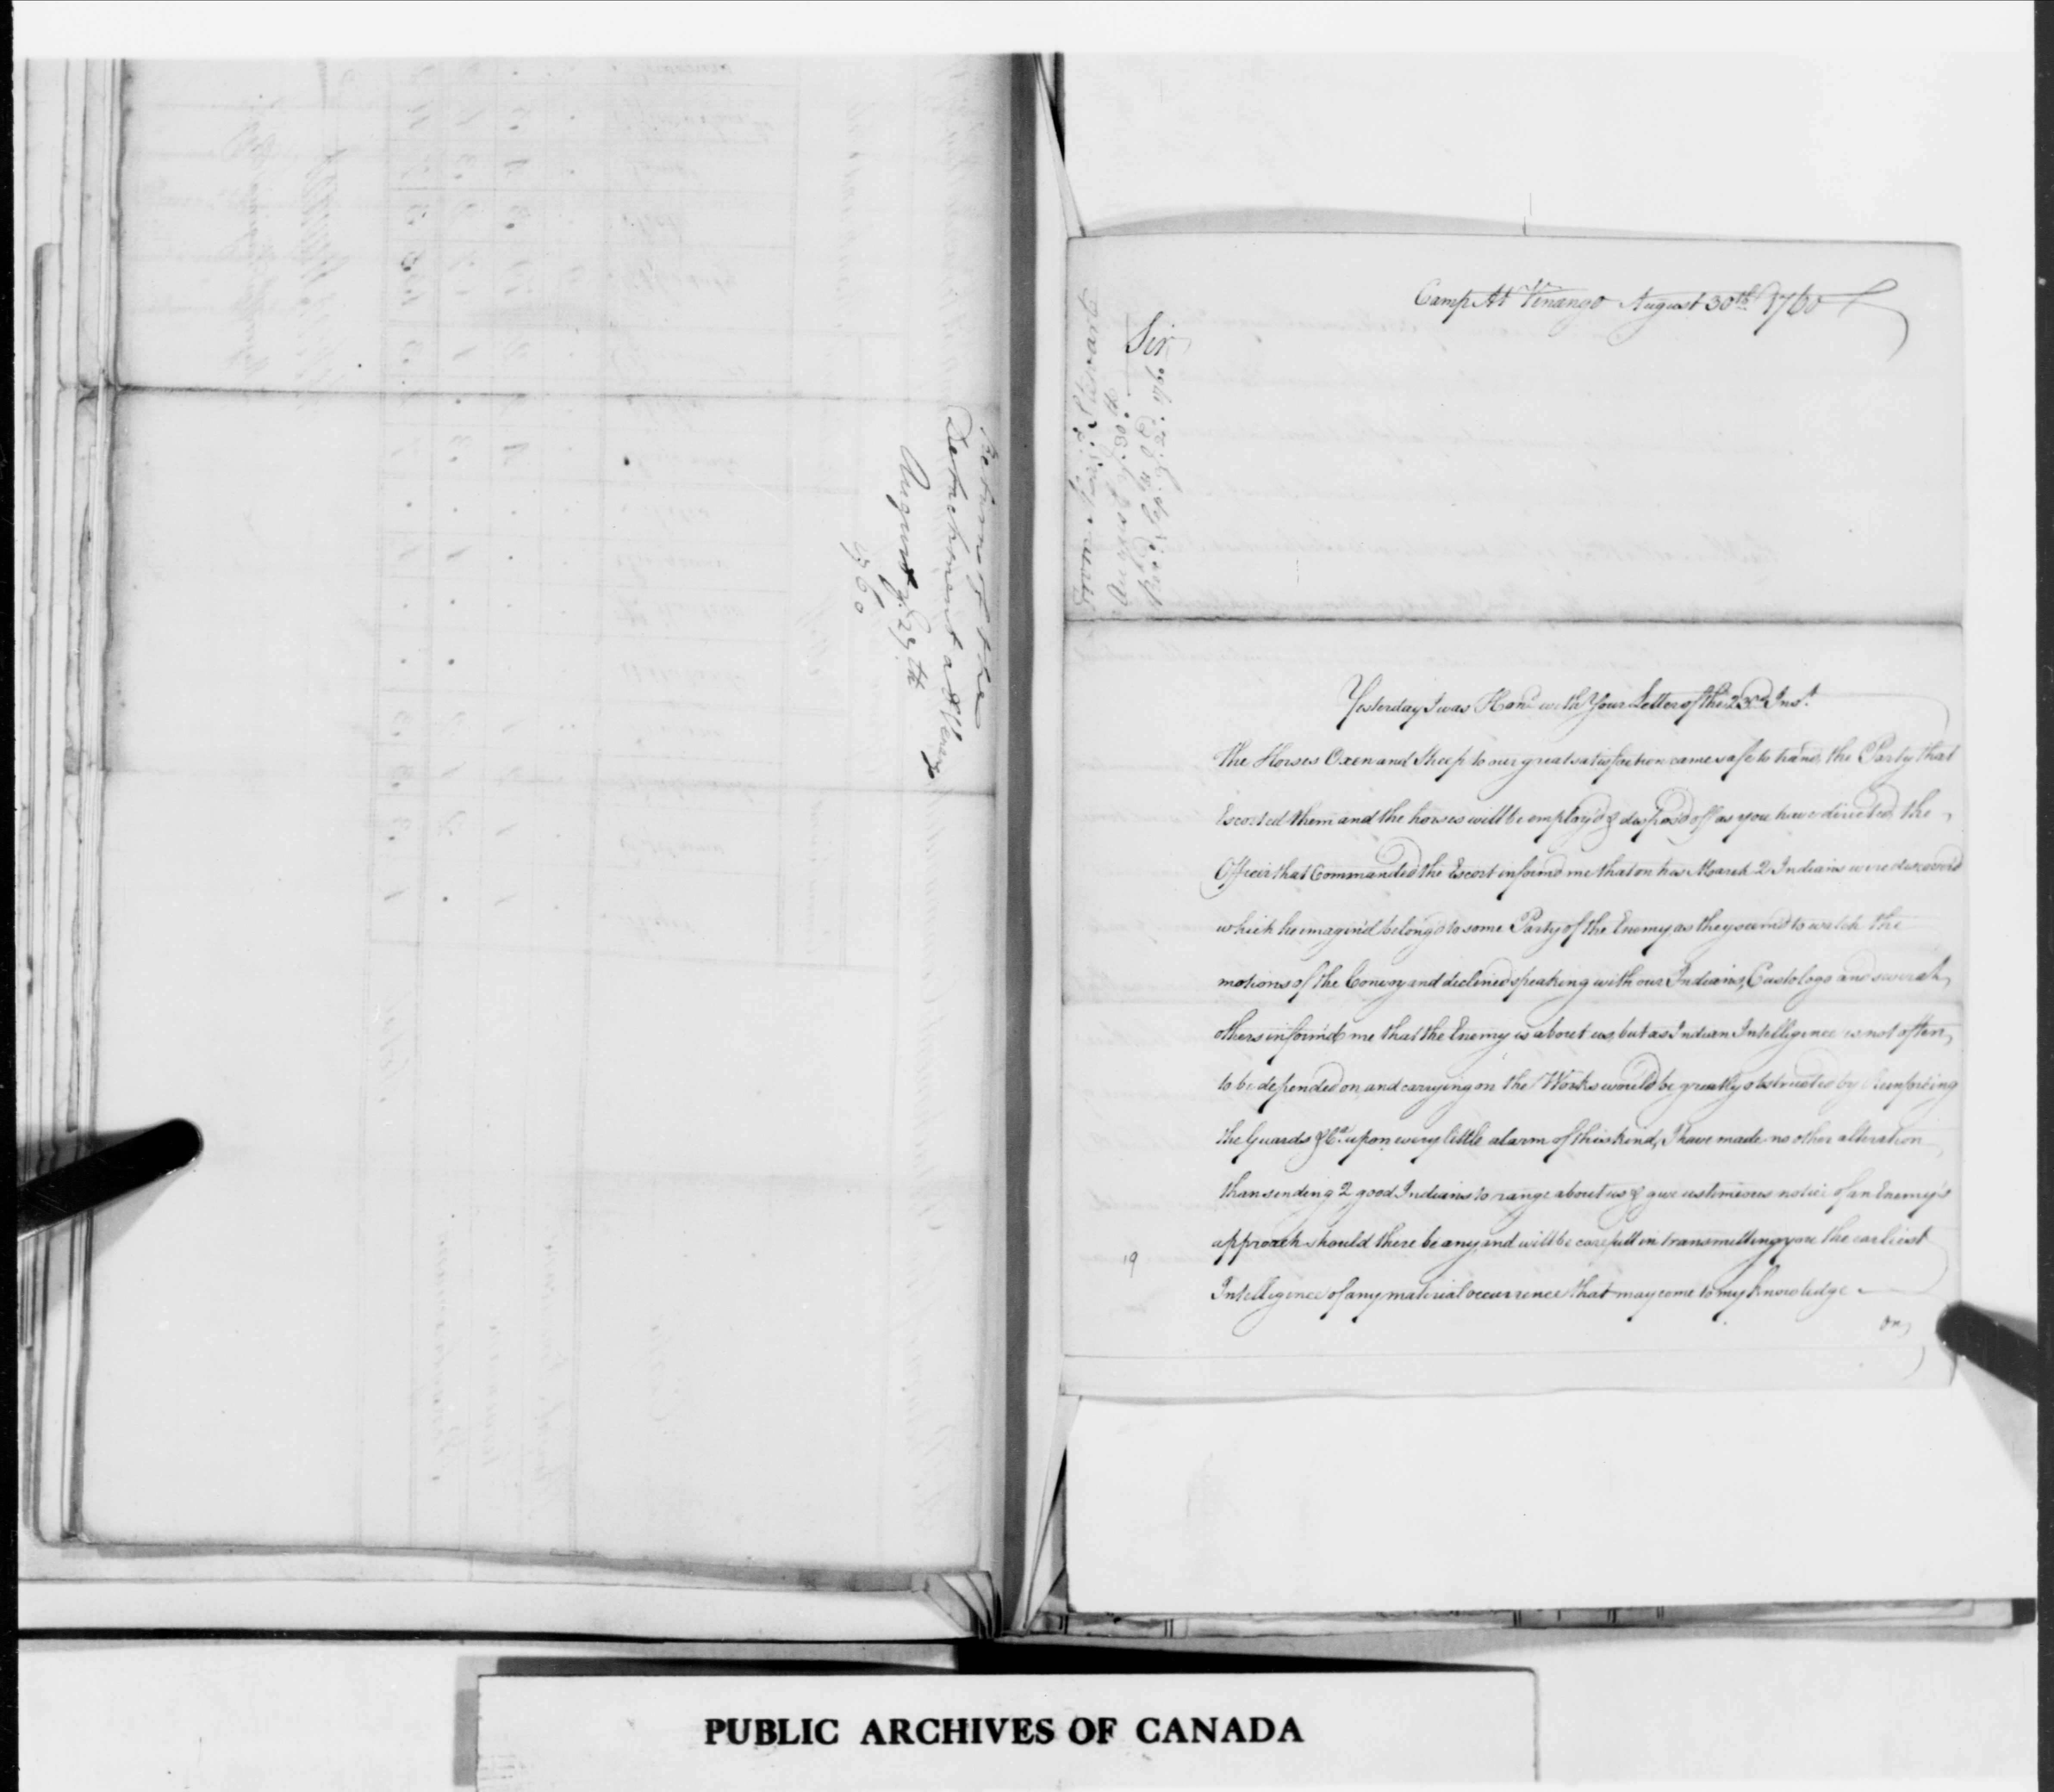 Return of the
Detachment at Venango
August ye 29th
1760
Camp At Venango August 30th 1760
Sir
From Majr Stewart
August ye 30th
Yesterday I was Hond with Your Letter of the 23rd Inst
the Horses Oxen and Sheep to our great satisfaction came safe to hand, the Party that
Escorted them and the horses will be employ'd & dispos'd off as you have directed, the
Officer that Commanded the Escort inform'd me that on his March 2 Indians were discover'd
which he imagin'd belong'd to some Party of the Enemy, as they seem'd to watch the
motions of the Convoy and declined speaking with our Indians, Custologo and severall
others inform'd me that the Enemy is about us, but as Indian Intelligence is not often
to be depended on, and carrying on the Works would be greatly obstructed by Reinforcing
the Guards &ca upon every little alarm of this kind, I have made no other alteration
than sending 2 good Indians to range about us & give us timeous notice of an Enemy's
approach should there be any, and will be carefull in transmitting you the earliest
Intelligence of any material occurrence that may come to my knowledge
On
19
PUBLIC ARCHIVES OF CANADA